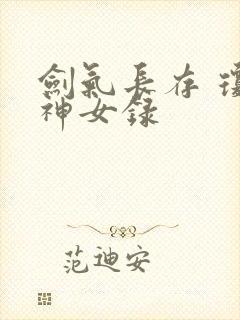 劍氣長存
神女錄
范迪安